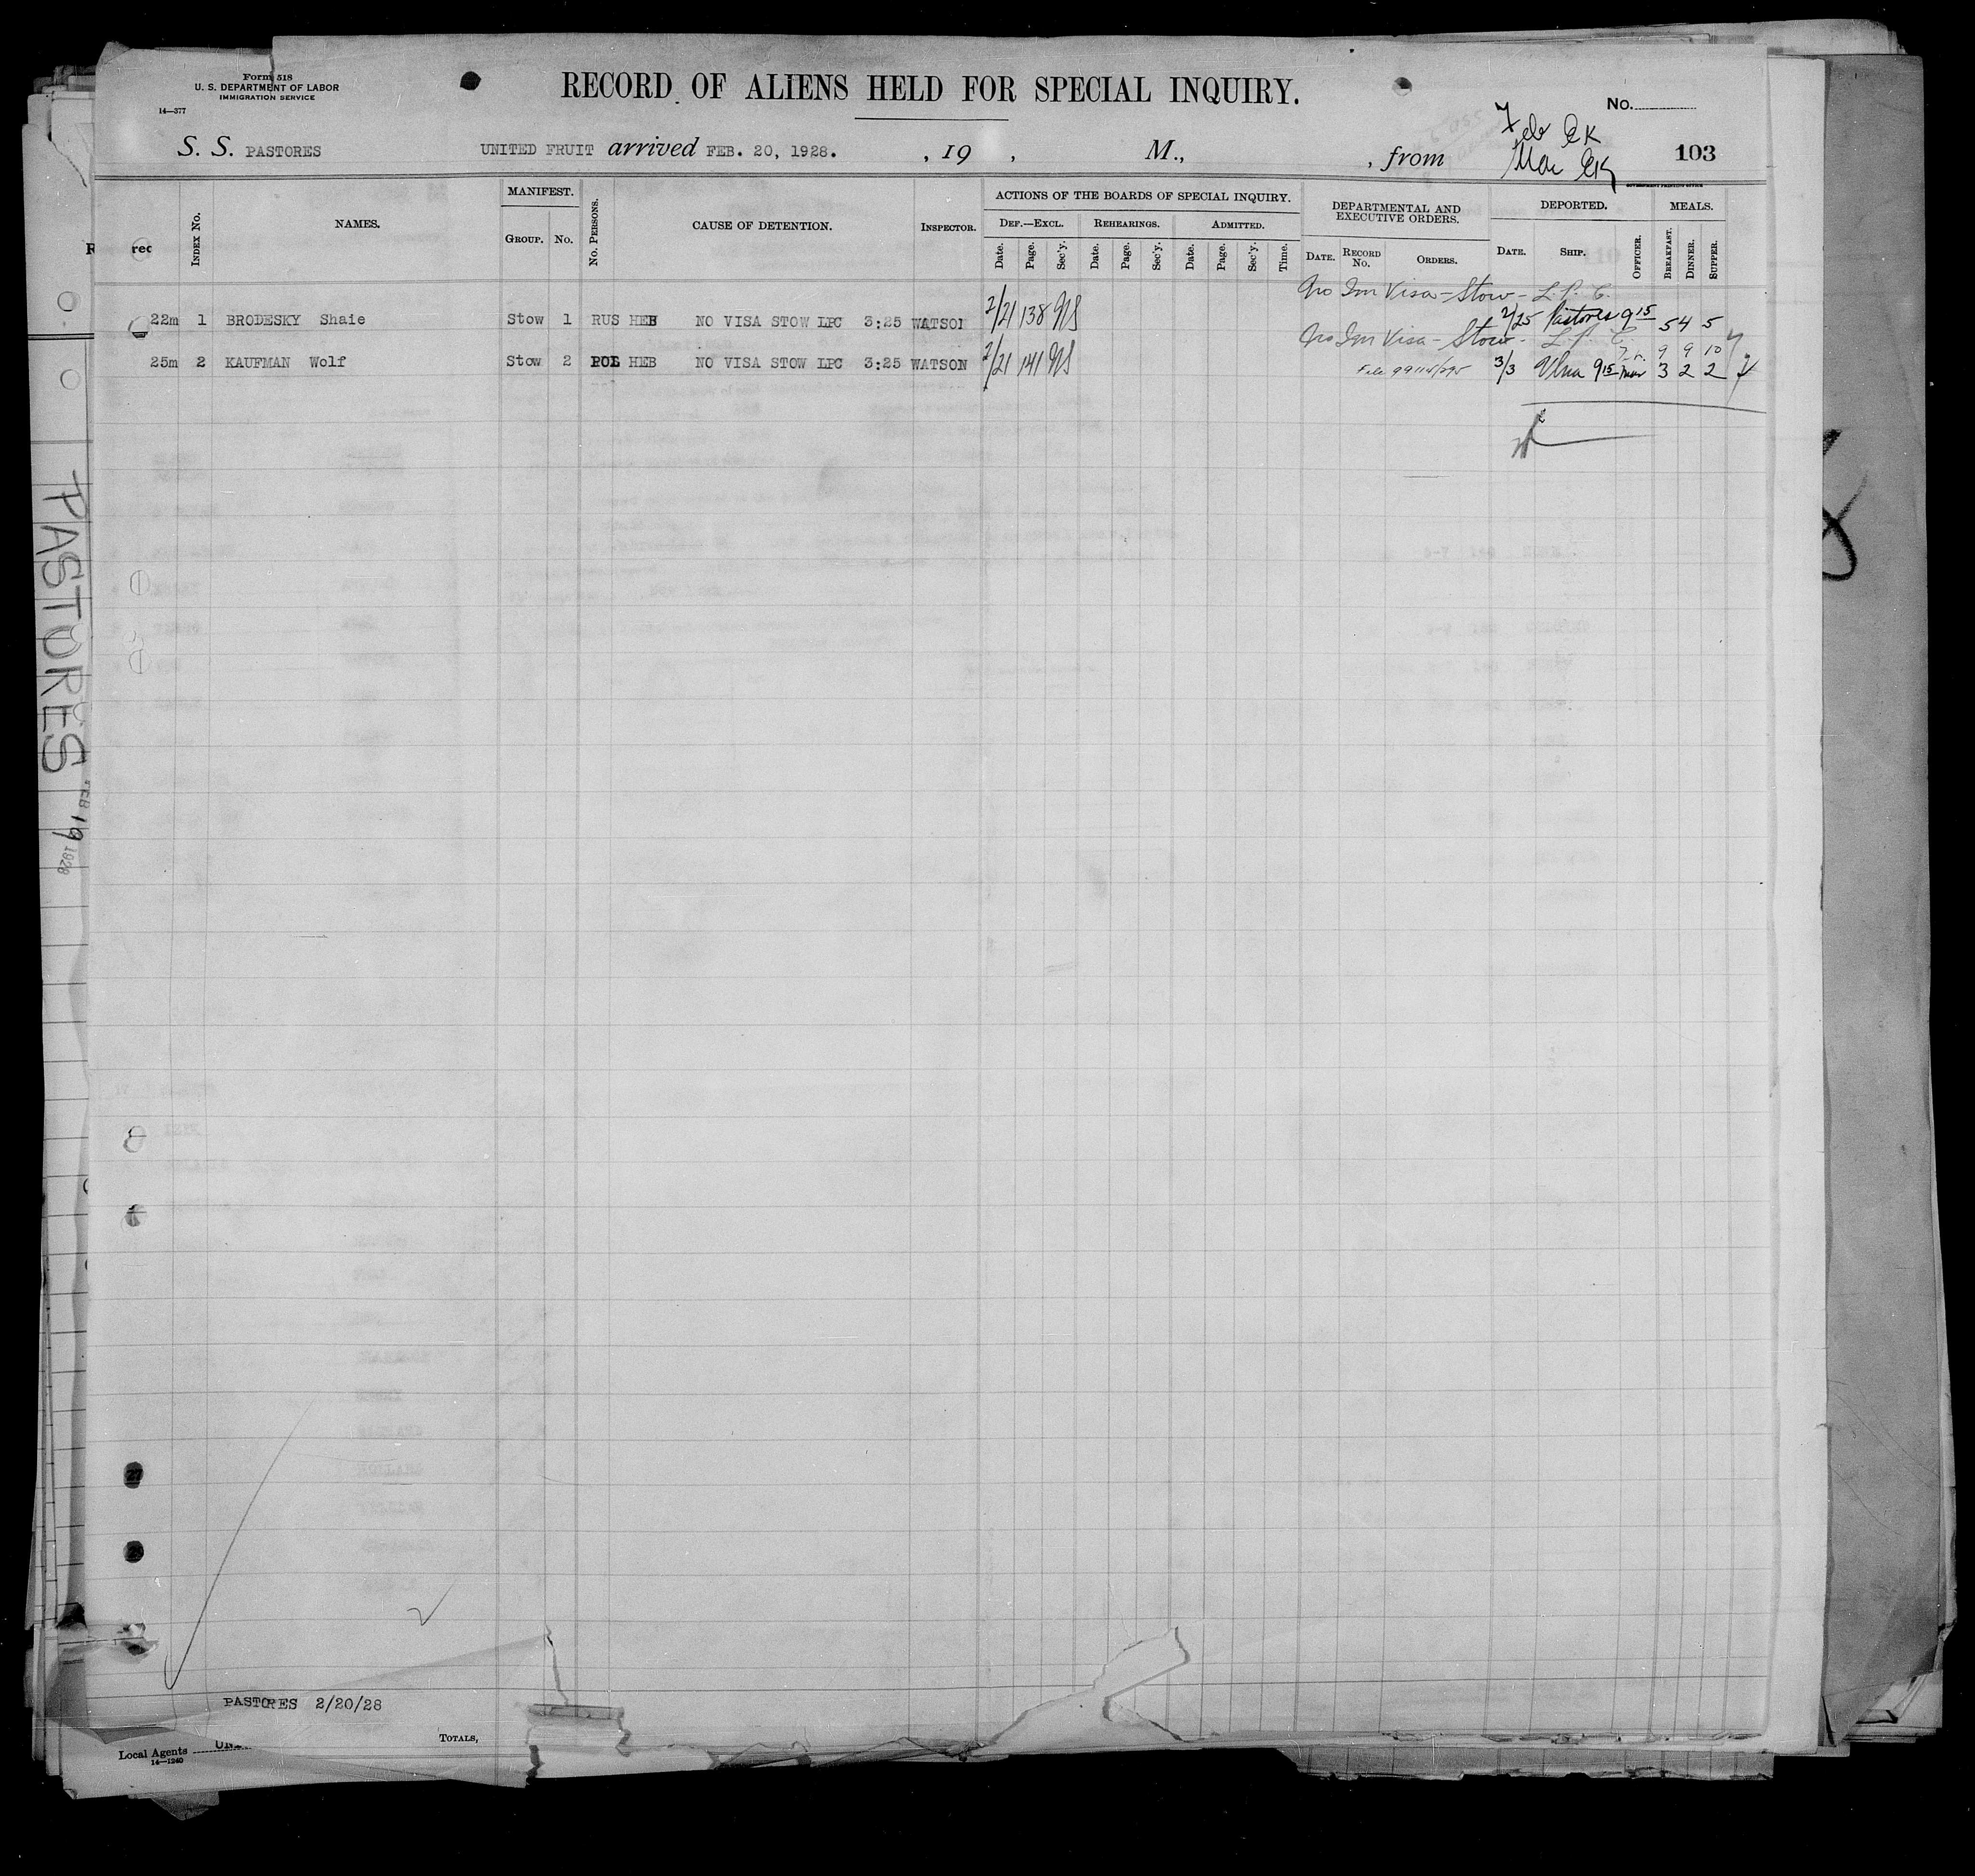 Form 518
U. S. DEPARTMENT OF LABOR
IMMIGRATION SERVICE
14—377
RECORD OF ALIENS HELD FOR SPECIAL INQUIRY.
No.
Feb EK
Mar EK
103
S. S. PASTORES UNITED FRUIT arrived FEB. 20, 1928. , 19 , M., , from
GOVERNMENT PRINTING OFFICE
rec
INDEX No.
NAMES.
MANIFEST.
GROUP. No.
No. PERSONS.
CAUSE OF DETENTION.
INSPECTOR.
ACTIONS OF THE BOARDS OF SPECIAL INQUIRY.
DEF.—EXCL. REHEARINGS. ADMITTED.
Date. Page. Sec'y. Date. Page. Sec'y. Date. Page. Sec'y. Time.
DEPARTMENTAL AND EXECUTIVE ORDERS.
DATE. RECORD No. ORDERS.
DEPORTED.
DATE. SHIP. OFFICER.
MEALS.
BREAKFAST. DINNER. SUPPER.
No Im Visa - Stow - L. P. C.
22m 1 BRODESKY Shaie Stow 1 RUS HEB NO VISA STOW LPC 3:25 WATSON 2/21 138 2/25 Pastores 9 15 5 4 5
No Im Visa - Stow - L. P. C.
9 9 10
25m 2 KAUFMAN Wolf Stow 2 POL HEB NO VISA STOW LPC 3:25 WATSON 2/21 141 File 3/3 9 15 Mar 3 2 2
PASTORES FEB 19 1928
27
PASTORES 2/20/28
TOTALS,
Local Agents
14—1240